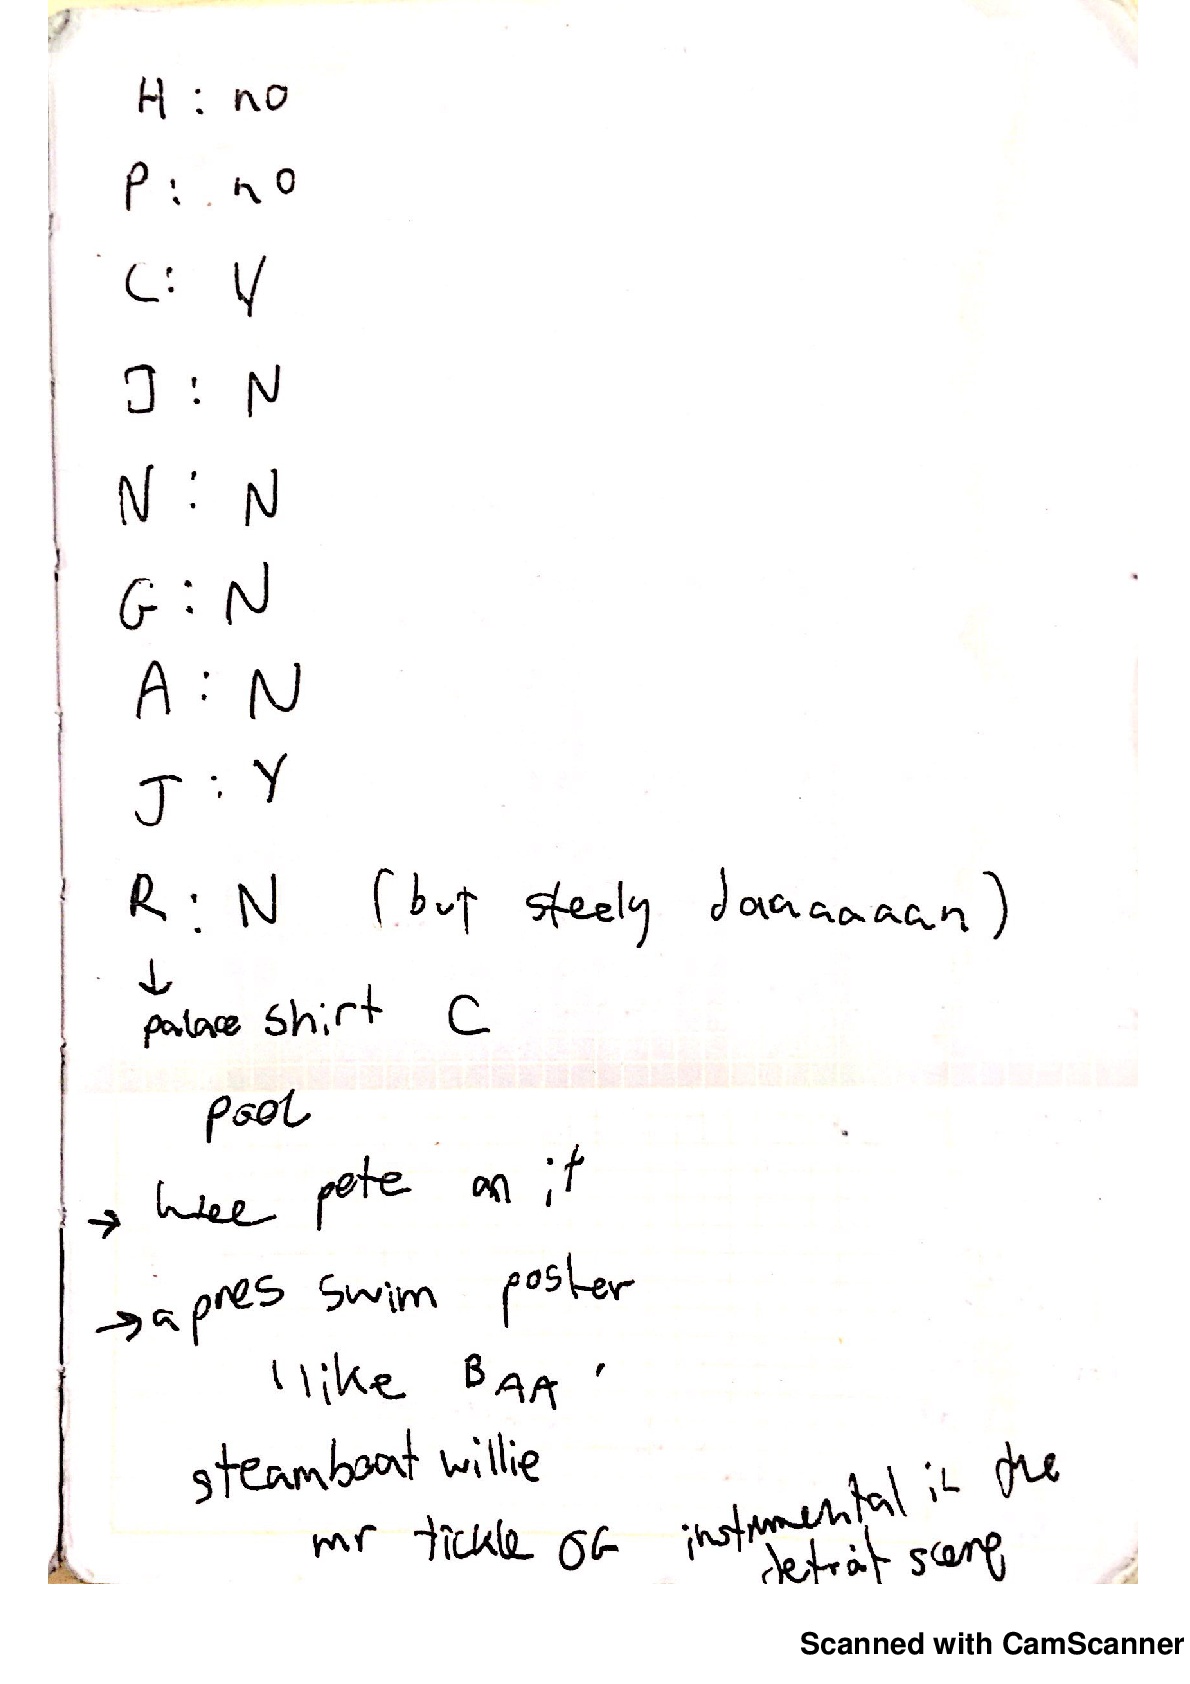 H : no
P : no
C : Y
J : N
N : N
G : N
A : N
J : Y
R : N (but steely daaaaaaan)
↓
palace shirt C
pool
→ wee pete on it
→ apres swim poster
I like BAA '
steamboat willie
mr tickle OG instrumental in the
detroit scene
Scanned with CamScanner